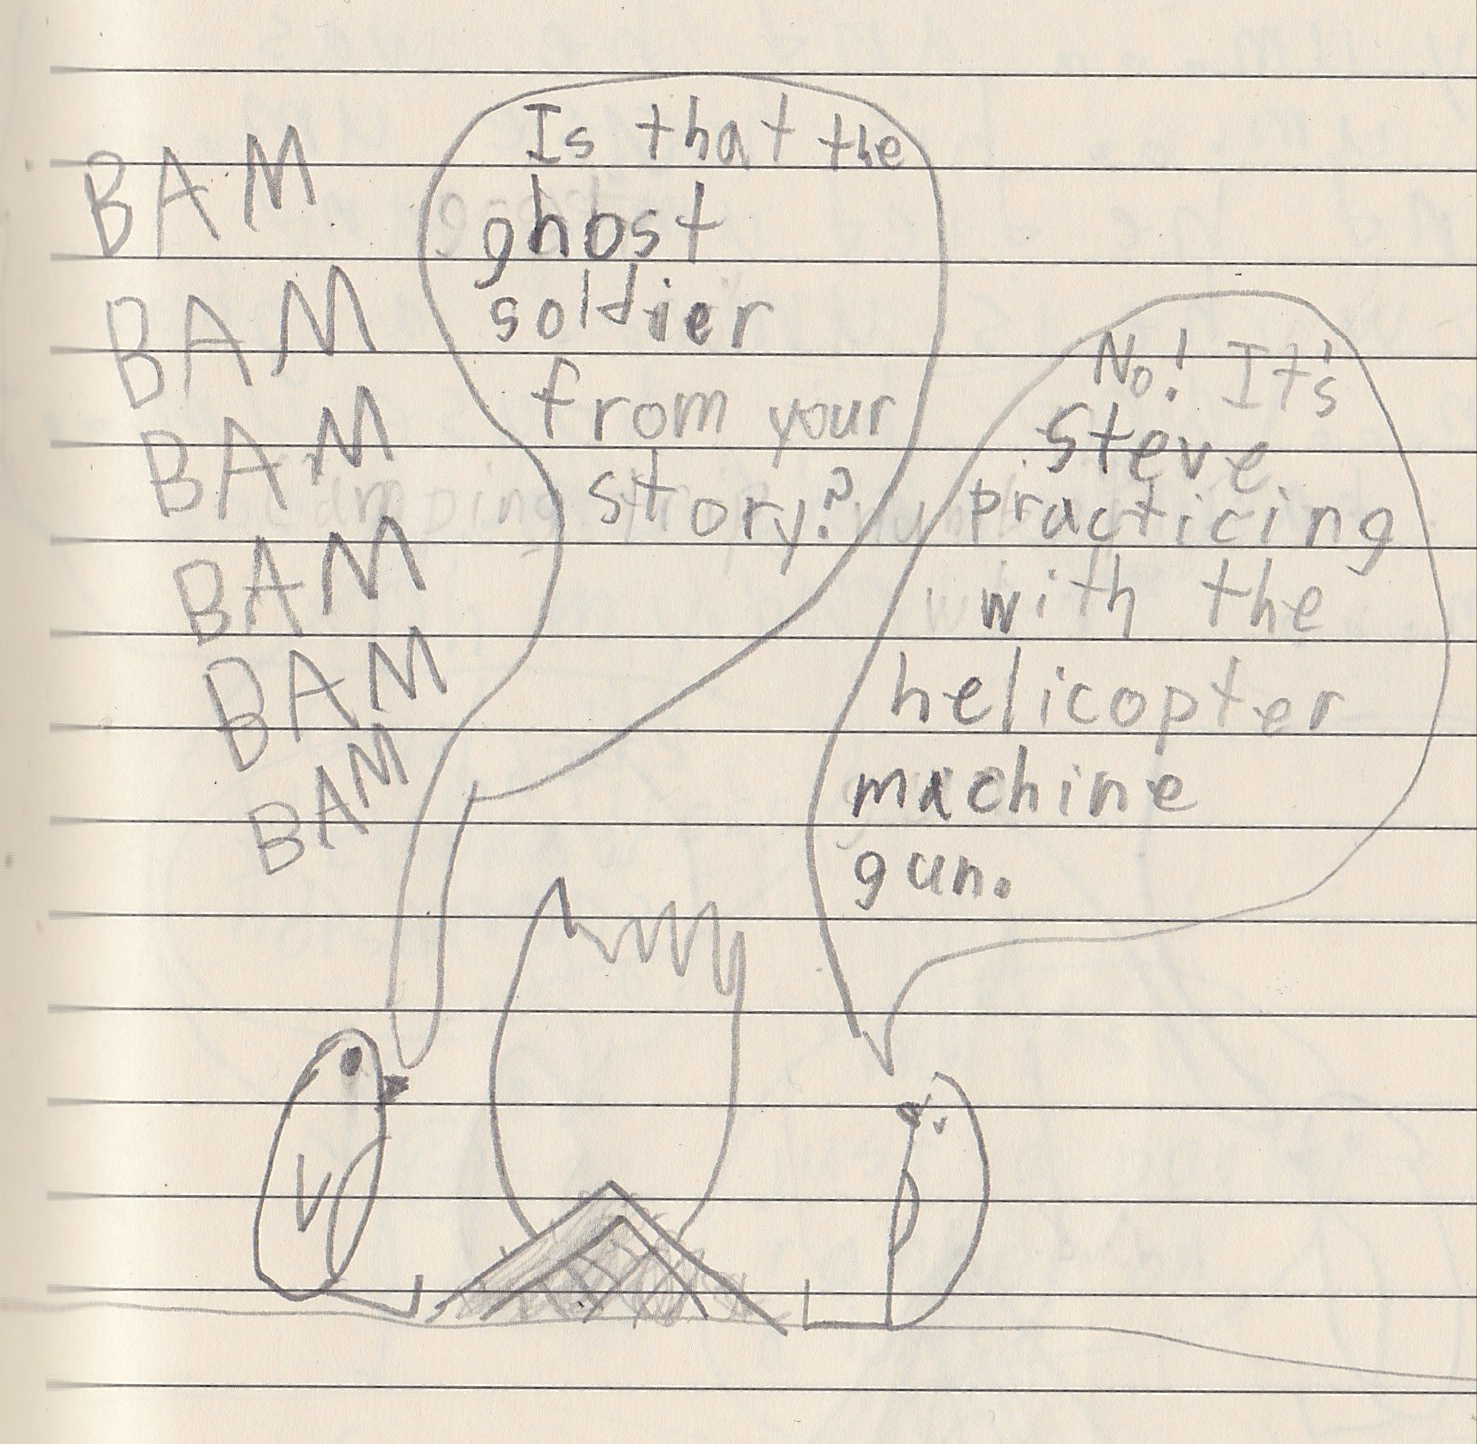 BAM
BAM
BAM
BAM
BAM
BAM
Is that the
ghost
soldier
from your
story?
No! It's
Steve
practicing
with the
helicopter
machine
gun.